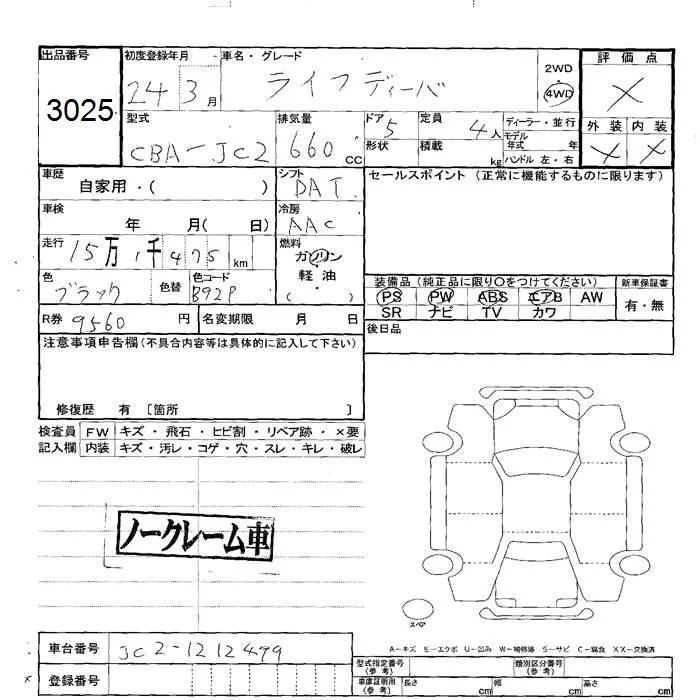 出品番号
3025
初度登録年月
24 3月
車名・グレード
ライフディーバ
2WD
・
4WD
評価点
×
外装 内装
× ×
型式
CBA-JC2
排気量
660 CC
ドア 5
形状
定員 4人
積載 kg
ディーラー・並行
モデル
年式 年
ハンドル 左・右
車歴
自家用・( )
シフト
DAT
セールスポイント (正常に機能するものに限ります)
車検
年 月( 日)
冷房
AAC
走行
15万1千475 km
燃料
ガソリン
・
軽油
( )
色
ブラック
色替
色コード
B92P
装備品 (純正品に限り○をつけてください)
PS PW ABS エアB AW
SR ナビ TV カワ
新車保証書
有・無
R券 9560円
名変期限 月 日
後日品
注意事項申告欄(不具合内容等は具体的に記入して下さい)
修復歴 有 〔箇所 〕
検査員
記入欄
FW キズ・飛石・ヒビ割・リペア跡・×要
内装 キズ・汚レ・コゲ・穴・スレ・キレ・破レ
ノークレーム車
スペア
A-キズ E-エクボ U-凹み W-補修跡 S-サビ C-腐食 XX-交換済
車台番号 JC2-1212499
登録番号
型式指定番号
(参考)
類別区分番号
(参考)
車庫証明用
(参考)
長さ cm 幅 cm 高さ cm